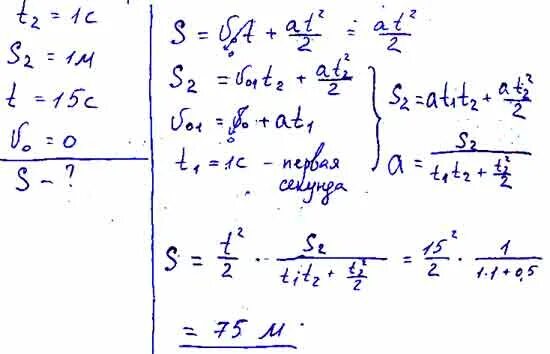 t₂ = 1с
S₂ = 1м
t = 15с
v₀ = 0
S - ?
S = v₀t + at²/2 = at²/2
S₂ = v₀₁t₂ + at₂²/2
v₀₁ = v₀ + at₁
t₁ = 1с - первая
секунда
S₂ = at₁t₂ + at₂²/2
a = S₂/(t₁t₂ + t₂²/2)
S = t²/2 · S₂/(t₁t₂ + t₂²/2) = 15²/2 · 1/(1·1+0,5)
= 75 м.